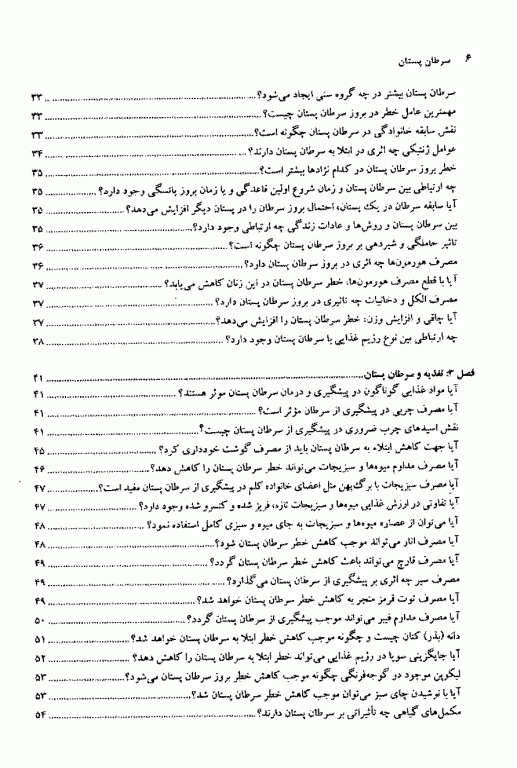 ۶ سرطان پستان
سرطان پستان بیشتر در چه گروه سنی ایجاد می‌شود؟ ۳۳
مهمترین عامل خطر در بروز سرطان پستان چیست؟ ۳۳
نقش سابقه خانوادگی در سرطان پستان چگونه است؟ ۳۳
عوامل ژنتیکی چه اثری در ابتلا به سرطان پستان دارند؟ ۳۴
خطر بروز سرطان پستان در کدام نژادها بیشتر است؟ ۳۵
چه ارتباطی بین سرطان پستان و زمان شروع اولین قاعدگی و یا زمان بروز یائسگی وجود دارد؟ ۳۵
آیا سابقه سرطان در یک پستان، احتمال بروز سرطان را در پستان دیگر افزایش می‌دهد؟ ۳۵
بین سرطان پستان و روش‌ها و عادات زندگی چه ارتباطی وجود دارد؟ ۳۵
تاثیر حاملگی و شیردهی بر بروز سرطان پستان چگونه است؟ ۳۶
مصرف هورمون‌ها چه اثری در بروز سرطان پستان دارد؟ ۳۶
آیا با قطع مصرف هورمون‌ها، خطر سرطان پستان در این زنان کاهش می‌یابد؟ ۳۷
مصرف الکل و دخانیات چه تاثیری در بروز سرطان پستان دارد؟ ۳۷
آیا چاقی و افزایش وزن، خطر سرطان پستان را افزایش می‌دهد؟ ۳۷
چه ارتباطی بین نوع رژیم غذایی با سرطان پستان وجود دارد؟ ۳۸
فصل ۳: تغذیه و سرطان پستان ۴۱
آیا مواد غذایی گوناگون در پیشگیری و درمان سرطان پستان موثر هستند؟ ۴۱
آیا مصرف چربی در پیشگیری از سرطان مؤثر است؟ ۴۱
نقش اسیدهای چرب ضروری در پیشگیری از سرطان پستان چیست؟ ۴۱
آیا جهت کاهش ابتلاء به سرطان پستان باید از مصرف گوشت خودداری کرد؟ ۴۵
آیا مصرف مداوم میوه‌ها و سبزیجات می‌تواند خطر سرطان پستان را کاهش دهد؟ ۴۶
آیا مصرف سبزیجات با برگ‌پهن مثل اعضای خانواده کلم در پیشگیری از سرطان پستان مفید است؟ ۴۷
آیا تفاوتی در ارزش غذایی میوه‌ها و سبزیجات تازه، فریز شده و کنسرو شده وجود دارد؟ ۴۷
آیا می‌توان از عصاره میوه‌ها و سبزیجات به جای میوه و سبزی کامل استفاده نمود؟ ۴۸
آیا مصرف انار می‌تواند موجب کاهش خطر سرطان پستان شود؟ ۴۸
آیا مصرف قارچ می‌تواند باعث کاهش خطر سرطان پستان گردد؟ ۴۹
مصرف سیر چه اثری بر پیشگیری از سرطان پستان می‌گذارد؟ ۴۹
آیا مصرف توت قرمز منجر به کاهش خطر سرطان پستان خواهد شد؟ ۴۹
آیا مصرف مداوم فیبر می‌تواند موجب پیشگیری از سرطان پستان گردد؟ ۵۰
دانه (بذر) کتان چیست و چگونه موجب کاهش خطر ابتلا به سرطان پستان خواهد شد؟ ۵۱
آیا جایگزینی سویا در رژیم غذایی می‌تواند خطر ابتلا به سرطان پستان را کاهش دهد؟ ۵۲
لیکوپن موجود در گوجه‌فرنگی چگونه موجب کاهش خطر بروز سرطان پستان می‌شود؟ ۵۳
آیا با نوشیدن چای سبز می‌توان موجب کاهش خطر سرطان پستان شد؟ ۵۳
مکمل‌های گیاهی چه تأثیراتی بر سرطان پستان دارند؟ ۵۴